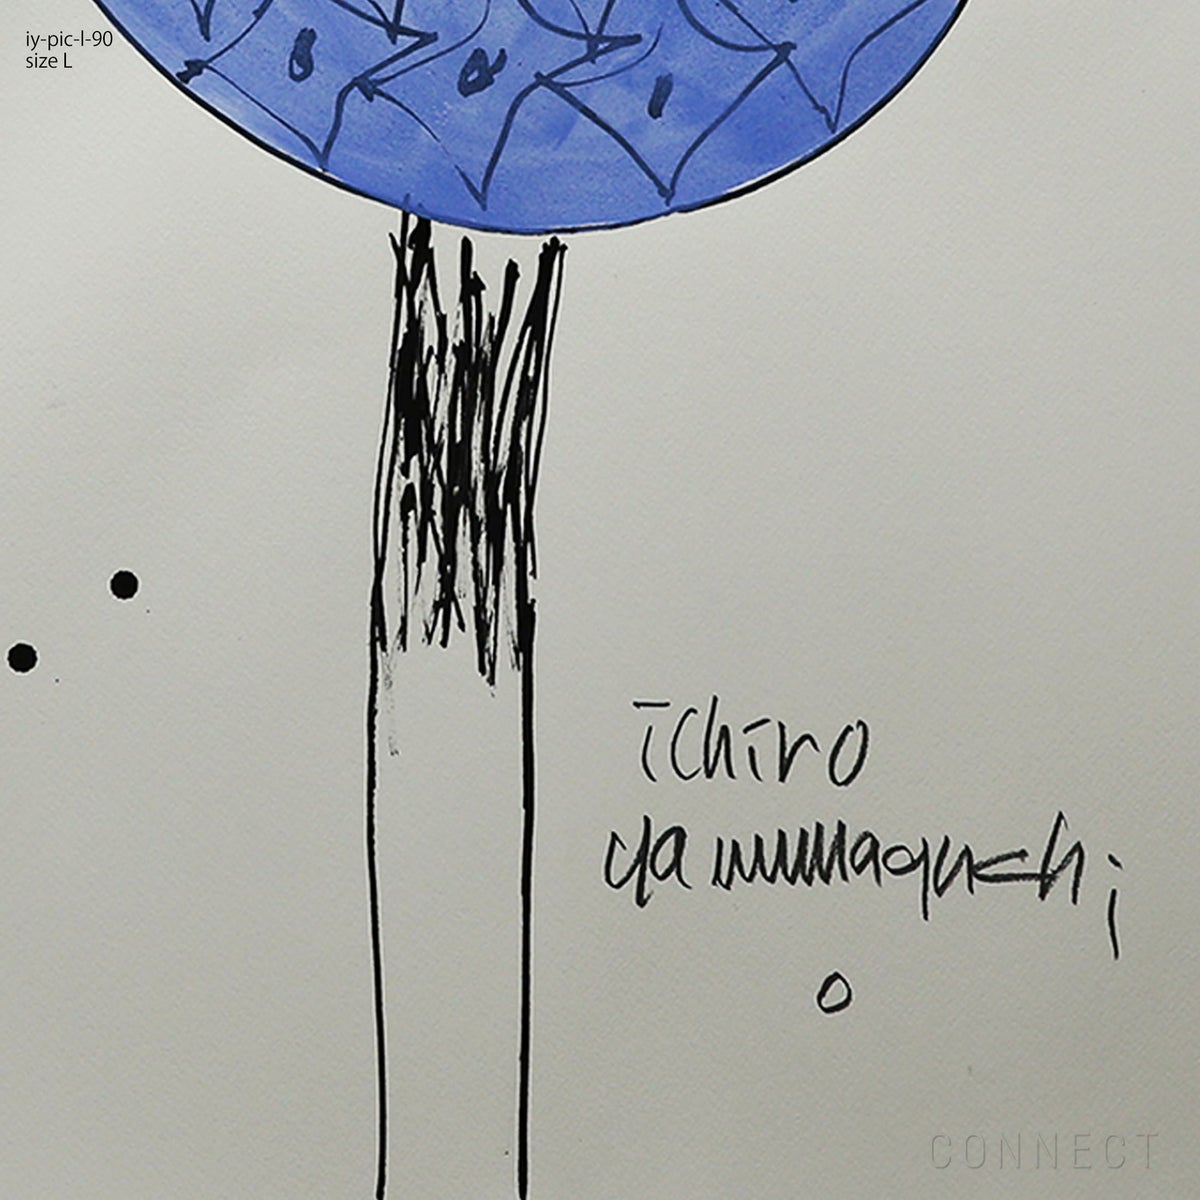 iy-pic-l-90
size L
ichiro
yamaguchi
CONNECT